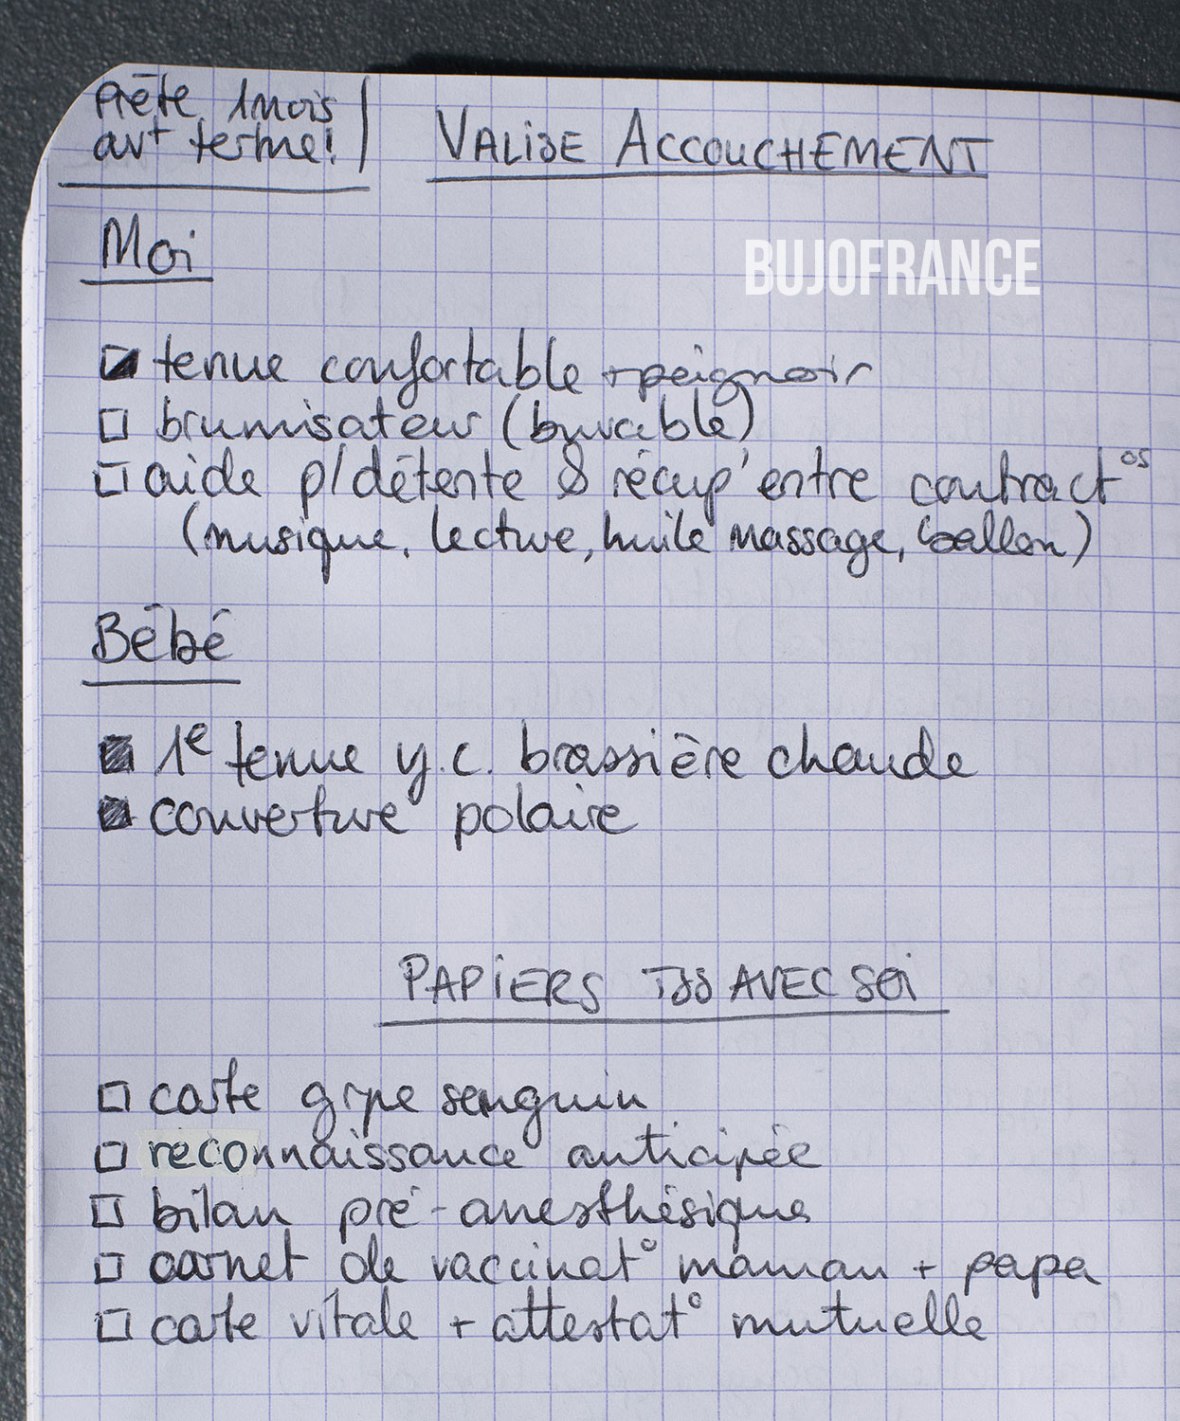 Prête 1 mois
avt terme!
VALISE ACCOUCHEMENT
Moi
BUJOFRANCE
tenue confortable + peignoir
brumisateur (buvable)
aide p/détente & récup' entre contract°s
(musique, lecture, huile massage, ballon)
Bébé
1e tenue y.c. brassière chaude
couverture polaire
PAPIERS TJS AVEC SOI
carte grpe sanguin
reconnaissance anticipée
bilan pré-anesthésique
carnet de vaccinat° maman + papa
carte vitale + attestat° mutuelle